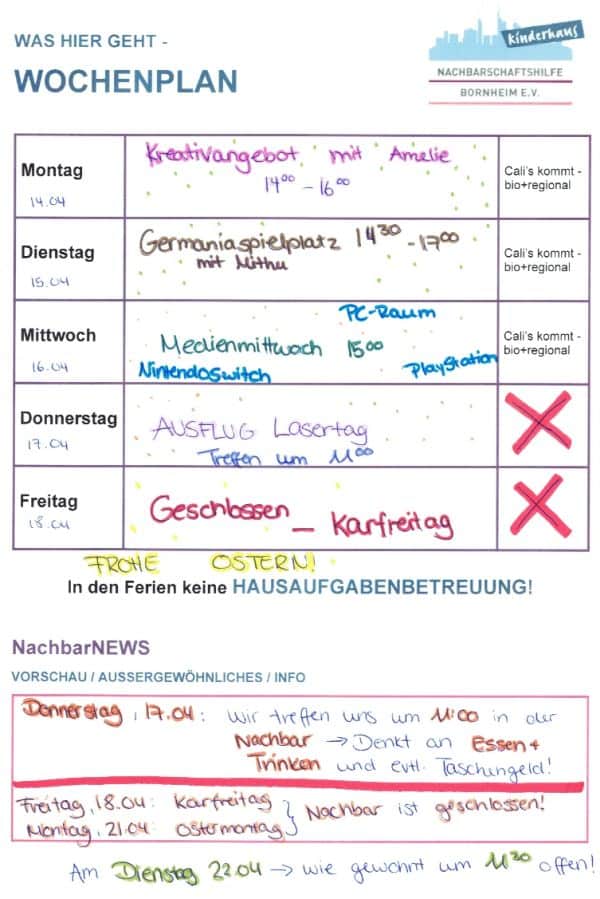 WAS HIER GEHT -
WOCHENPLAN
kinderhaus
NACHBARSCHAFTSHILFE
BORNHEIM E.V.
Montag
14.04
Kreativangebot mit Amelie
14⁰⁰ - 16⁰⁰
Cali's kommt -
bio+regional
Dienstag
15.04
Germaniaspielplatz 14³⁰ - 17⁰⁰
mit Mithu
Cali's kommt -
bio+regional
Mittwoch
16.04
PC-Raum
Medienmittwoch 15⁰⁰
NintendoSwitch
PlayStation
Cali's kommt -
bio+regional
Donnerstag
17.04
AUSFLUG Lasertag
Treffen um 11⁰⁰
Freitag
18.04
Geschlossen - Karfreitag
FROHE OSTERN!
In den Ferien keine HAUSAUFGABENBETREUUNG!
NachbarNEWS
VORSCHAU / AUSSERGEWÖHNLICHES / INFO
Donnerstag, 17.04: Wir treffen uns um 11:00 in der
Nachbar → Denkt an Essen +
Trinken und evtl. Taschengeld!
Freitag, 18.04: Karfreitag
Montag, 21.04: Ostermontag } Nachbar ist geschlossen!
Am Dienstag 22.04 → wie gewohnt um 11³⁰ offen!